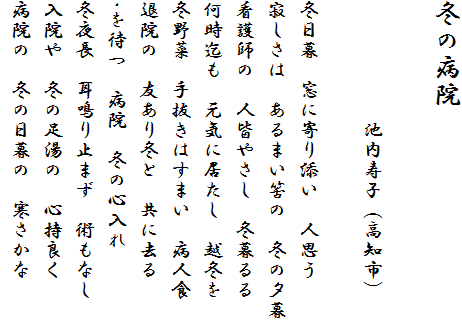 冬の病院
池内寿子(高知市)
冬日暮 窓に寄り添い 人思う
寂しさは あるまい筈の 冬の夕暮
看護師の 人皆やさし 冬暮るる
何時迄も 元気に居たし 越冬を
冬野菜 手抜きはすまい 病人食
退院の 友あり冬と 共に去る
・を待つ 病院 冬の心入れ
冬夜長 耳鳴り止まず 術もなし
入院や 冬の足湯の 心持良く
病院の 冬の日暮の 寒さかな